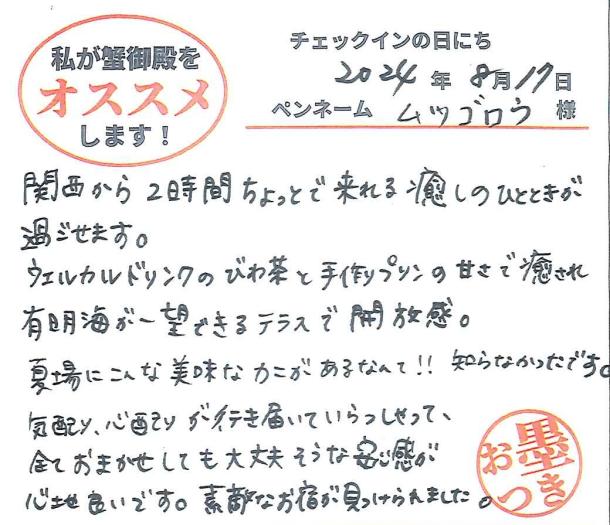 私が蟹御殿を
オススメ
します！
チェックインの日にち
2024年8月17日
ペンネーム ムツゴロウ 様
関西から2時間ちょっとで来れる癒しのひとときが
過ごせます。
ウェルカルドリンクのびわ茶と手作りプリンの甘さで癒され
有明海が一望できるテラスで開放感。
夏場にこんな美味なカニがあるなんて!! 知らなかったです。
気配り、心配りが行き届いていらっしゃって、
全ておまかせしても大丈夫そうな安心感が
心地良いです。素敵なお宿が見つけられました。
お墨つき